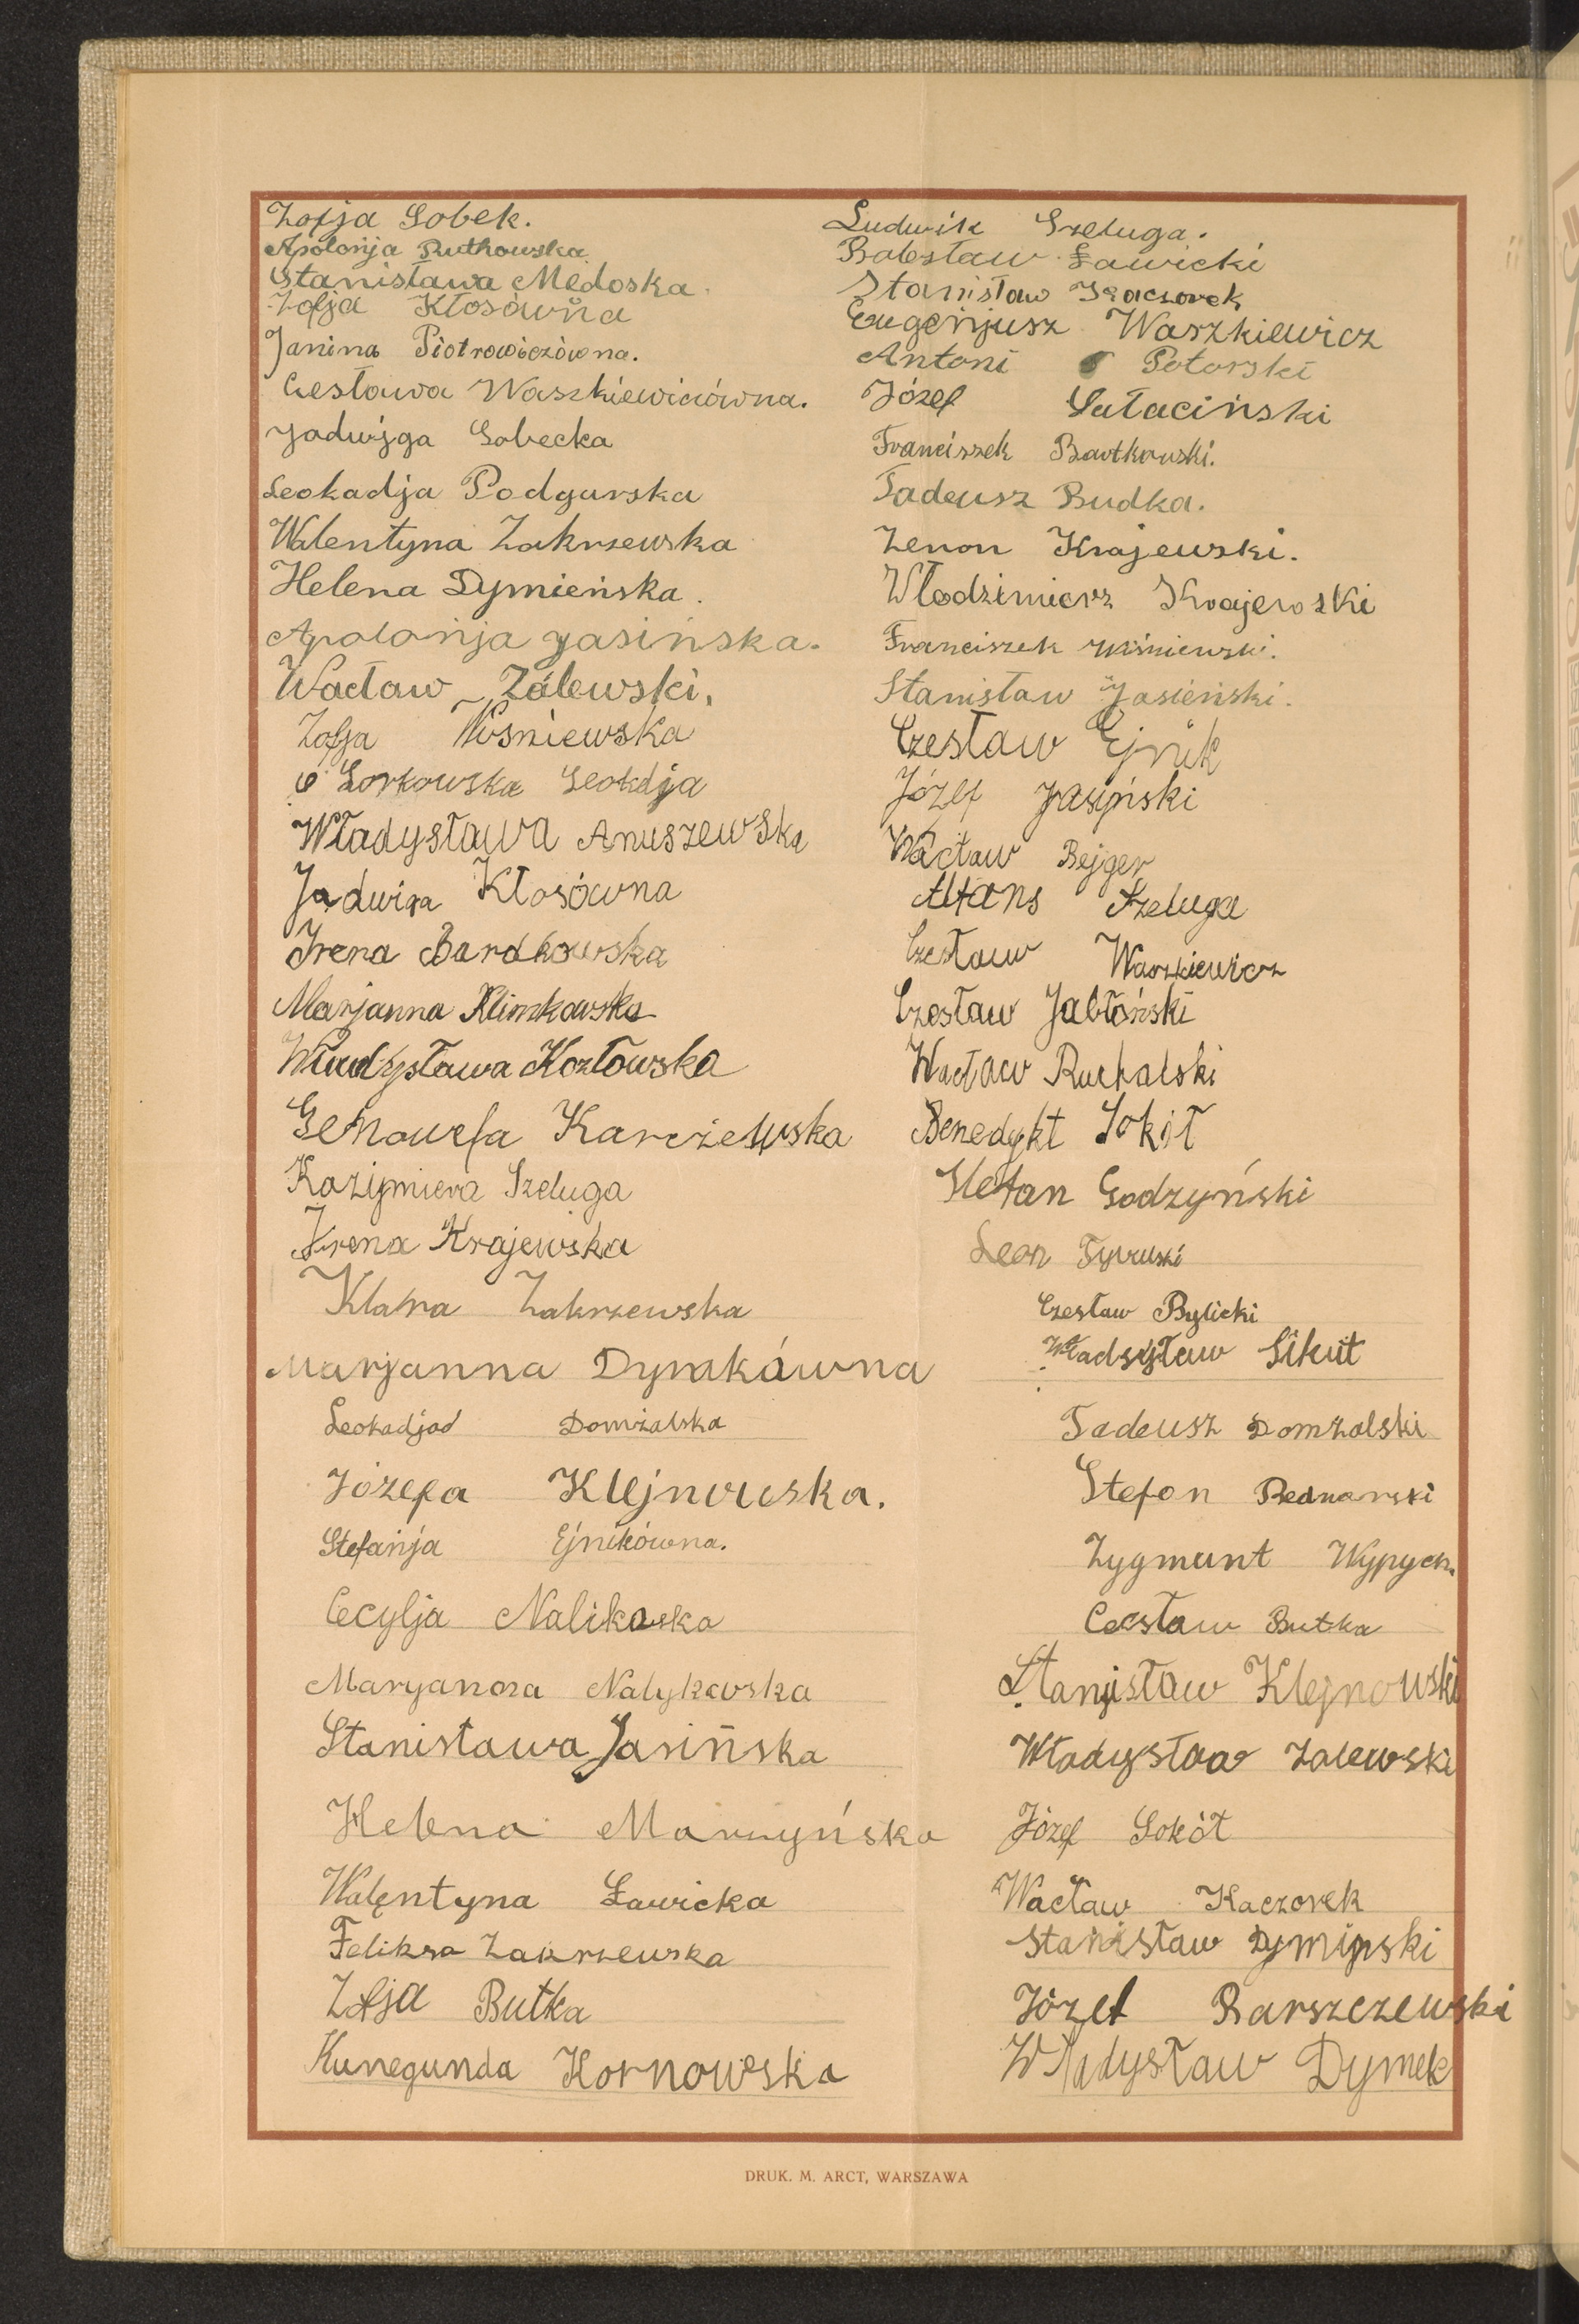 Zofja Sobek.
Apolonja Rutkowska
Stanisława Medoska.
Zofja Kłosówna
Janina Piotrowiczówna.
Cesława Waszkiewiczówna.
Jadwiga Sobecka
Leokadja Podgurska
Walentyna Zakrzewska
Helena Dymieńska.
Apolonja Jasińska.
Wacław Zalewski,
Zofja Wiśniewska
Leokdja
Władysława Anuszewska
Jadwiga Kłosówna
Irena Bardkowska
Marjanna Klimkowska
Władysława Kozłowska
Genowefa Karczewska
Kazimiera Szeluga
Irena Krajewska
Klara Zakrzewska
Marjanna Dymkówna
Leokadja Domżalska
Józefa Klejnowska.
Stefanja Ejnikówna.
Cecylja Nalikowska
Maryanna Nalykowska
Stanisława Jasińska
Helena
Walentyna Ławicka
Feliksa Zakrzewska
Zofja Butka
Kunegunda Kornowska
Ludwik Szeluga.
Bolesław Ławicki
Stanisław Kaczorek
Eugenjusz Waszkiewicz
Antoni Potorski
Józef Sałaciński
Franciszek Bartkowski.
Tadeusz Budka.
Zenon Krajewski.
Włodzimierz Krajewski
Franciszek Wiśniewski.
Stanisław Jasieński.
Czesław Ejnik
Józef Jasiński
Wacław Bejger
Szeluga
Czesław Waszkiewicz
Czesław Jabłoński
Wacław Ruchalski
Benedykt Sokół
Stefan Godzyński
Leon
Czesław Bylicki
Władsysław Sikut
Tadeusz Domżalski
Stefon Bednarski
Zygmunt Wypych.
Czesław Butka
Stanisław Klejnowski
Władysław Zalewski
Józef Sokół
Wacław Kaczorek
Stanisław Dymiński
Józef Barszczewski
Władysław Dymek
DRUK. M. ARCT, WARSZAWA